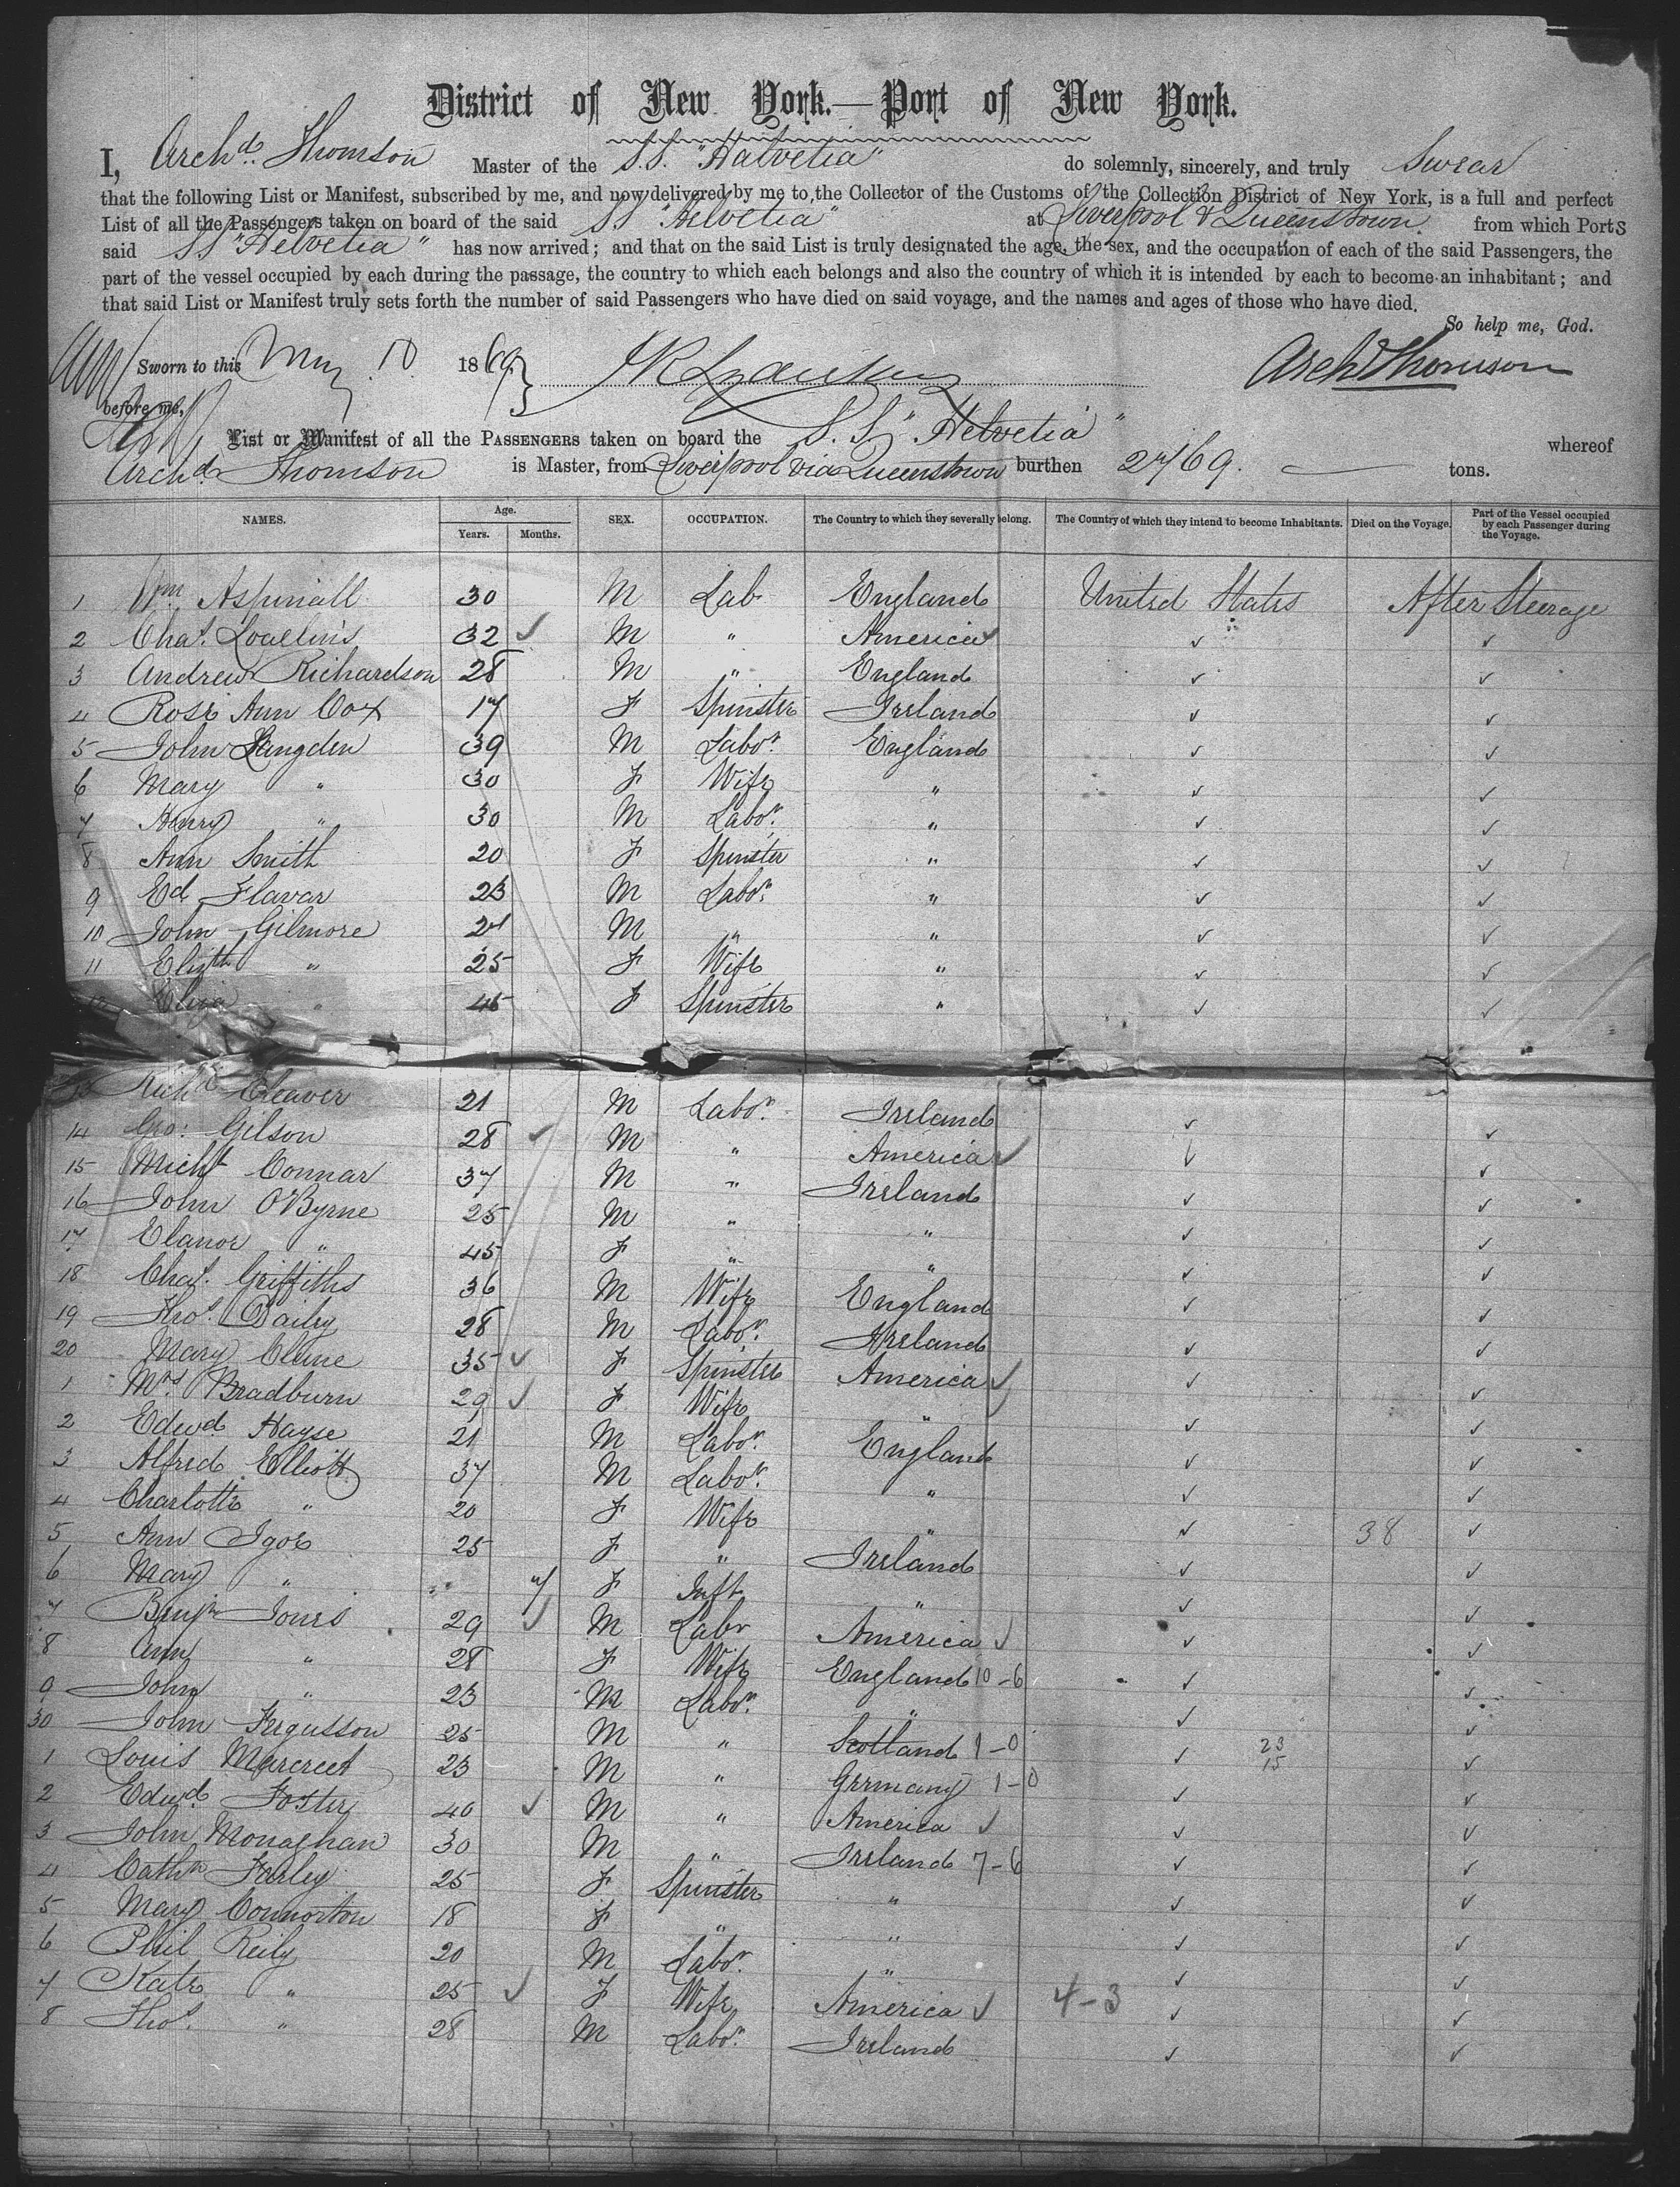 District of New York.—Port of New York.
I, Archd. Thomson Master of the S.S. "Halvetia" do solemnly, sincerely, and truly Swear
that the following List or Manifest, subscribed by me, and now delivered by me to the Collector of the Customs of the Collection District of New York, is a full and perfect
List of all the Passengers taken on board of the said SS "Helvetia" at Liverpool & Queenstown. from which Ports
said SS "Helvetia" has now arrived; and that on the said List is truly designated the age, the sex, and the occupation of each of the said Passengers, the
part of the vessel occupied by each during the passage, the country to which each belongs and also the country of which it is intended by each to become an inhabitant; and
that said List or Manifest truly sets forth the number of said Passengers who have died on said voyage, and the names and ages of those who have died.
So help me, God.
Sworn to this May 10 1869. Archd Thomson
before me,
List or Manifest of all the PASSENGERS taken on board the S.S. "Helvetia" whereof
Archd. Thomson is Master, from Liverpool via Queenstown burthen 2769. tons.
NAMES. Age. Years. Months. SEX. OCCUPATION. The Country to which they severally belong. The Country of which they intend to become Inhabitants. Died on the Voyage. Part of the Vessel occupied by each Passenger during the Voyage.
1 Wm Aspinall 30 M Lab England United States After Steerage
2 Chas. 32 ✓ M " America ✓ ✓ ✓
3 Andrew Richardson 28 M " England ✓ ✓
4 Rose Ann Cox 17 F Spinster Ireland ✓ ✓
5 John Langden 39 M Labor. England ✓ ✓
6 Mary " 30 F Wife " ✓ ✓
7 Henry " 30 M Labor. " ✓ ✓
8 Ann Smith 20 F Spinster " ✓ ✓
9 Ed Flavar 23 M Labor. " ✓ ✓
10 John Gilmore 21 M " " ✓ ✓
11 Elizth " 25 F Wife " ✓ ✓
12 Eliza " 45 F Spinster " ✓ ✓
Richd Cleaver 21 M Labor. Ireland ✓ ✓
14 Geo: Gilson 28 ✓ M " America ✓ ✓ ✓
15 Michl Connar 37 M " Ireland ✓ ✓
16 John O'Byrne 25 M " " ✓ ✓
17 Elanor " 45 F " " ✓ ✓
18 Chas. Griffiths 36 M Wife England ✓ ✓
19 Thos. Daily 28 M Labor. Ireland ✓ ✓
20 Mary Clune 35 ✓ F Spinster America ✓ ✓ ✓
1 Mrs Bradburn 29 ✓ F Wife " ✓ ✓ ✓
2 Edwd Hayse 21 M Labor. England ✓ ✓
3 Alfred Elliott 37 M Labor. " ✓ ✓
4 Charlotte " 20 F Wife " ✓ 38 ✓
5 Ann Igoe 25 F " Ireland ✓ ✓
6 Mary " " 7 F Inft " ✓ ✓
7 Benjn Jones 29 ✓ M Labr America ✓ ✓ ✓
8 Ann " 28 F Wife England 10-6 ✓ ✓
9 John " 23 M Labor. " ✓ ✓
30 John Fergusson 25 M " Scotland 1-0 ✓ 23 15 ✓
1 Louis 23 M " Germany 1-0 ✓ ✓
2 Edwd Foster 40 ✓ M " America ✓ ✓ ✓
3 John Monaghan 30 M " Ireland 7-6 ✓ ✓
4 Cathn Farley 25 F Spinster " ✓ ✓
5 Mary Connorton 18 F " " ✓ ✓
6 Phil Reily 20 M Labor. " ✓ ✓
7 Kate " 25 ✓ F Wife America ✓ 4-3 ✓ ✓
8 Thos. " 28 M Labor. Ireland ✓ ✓